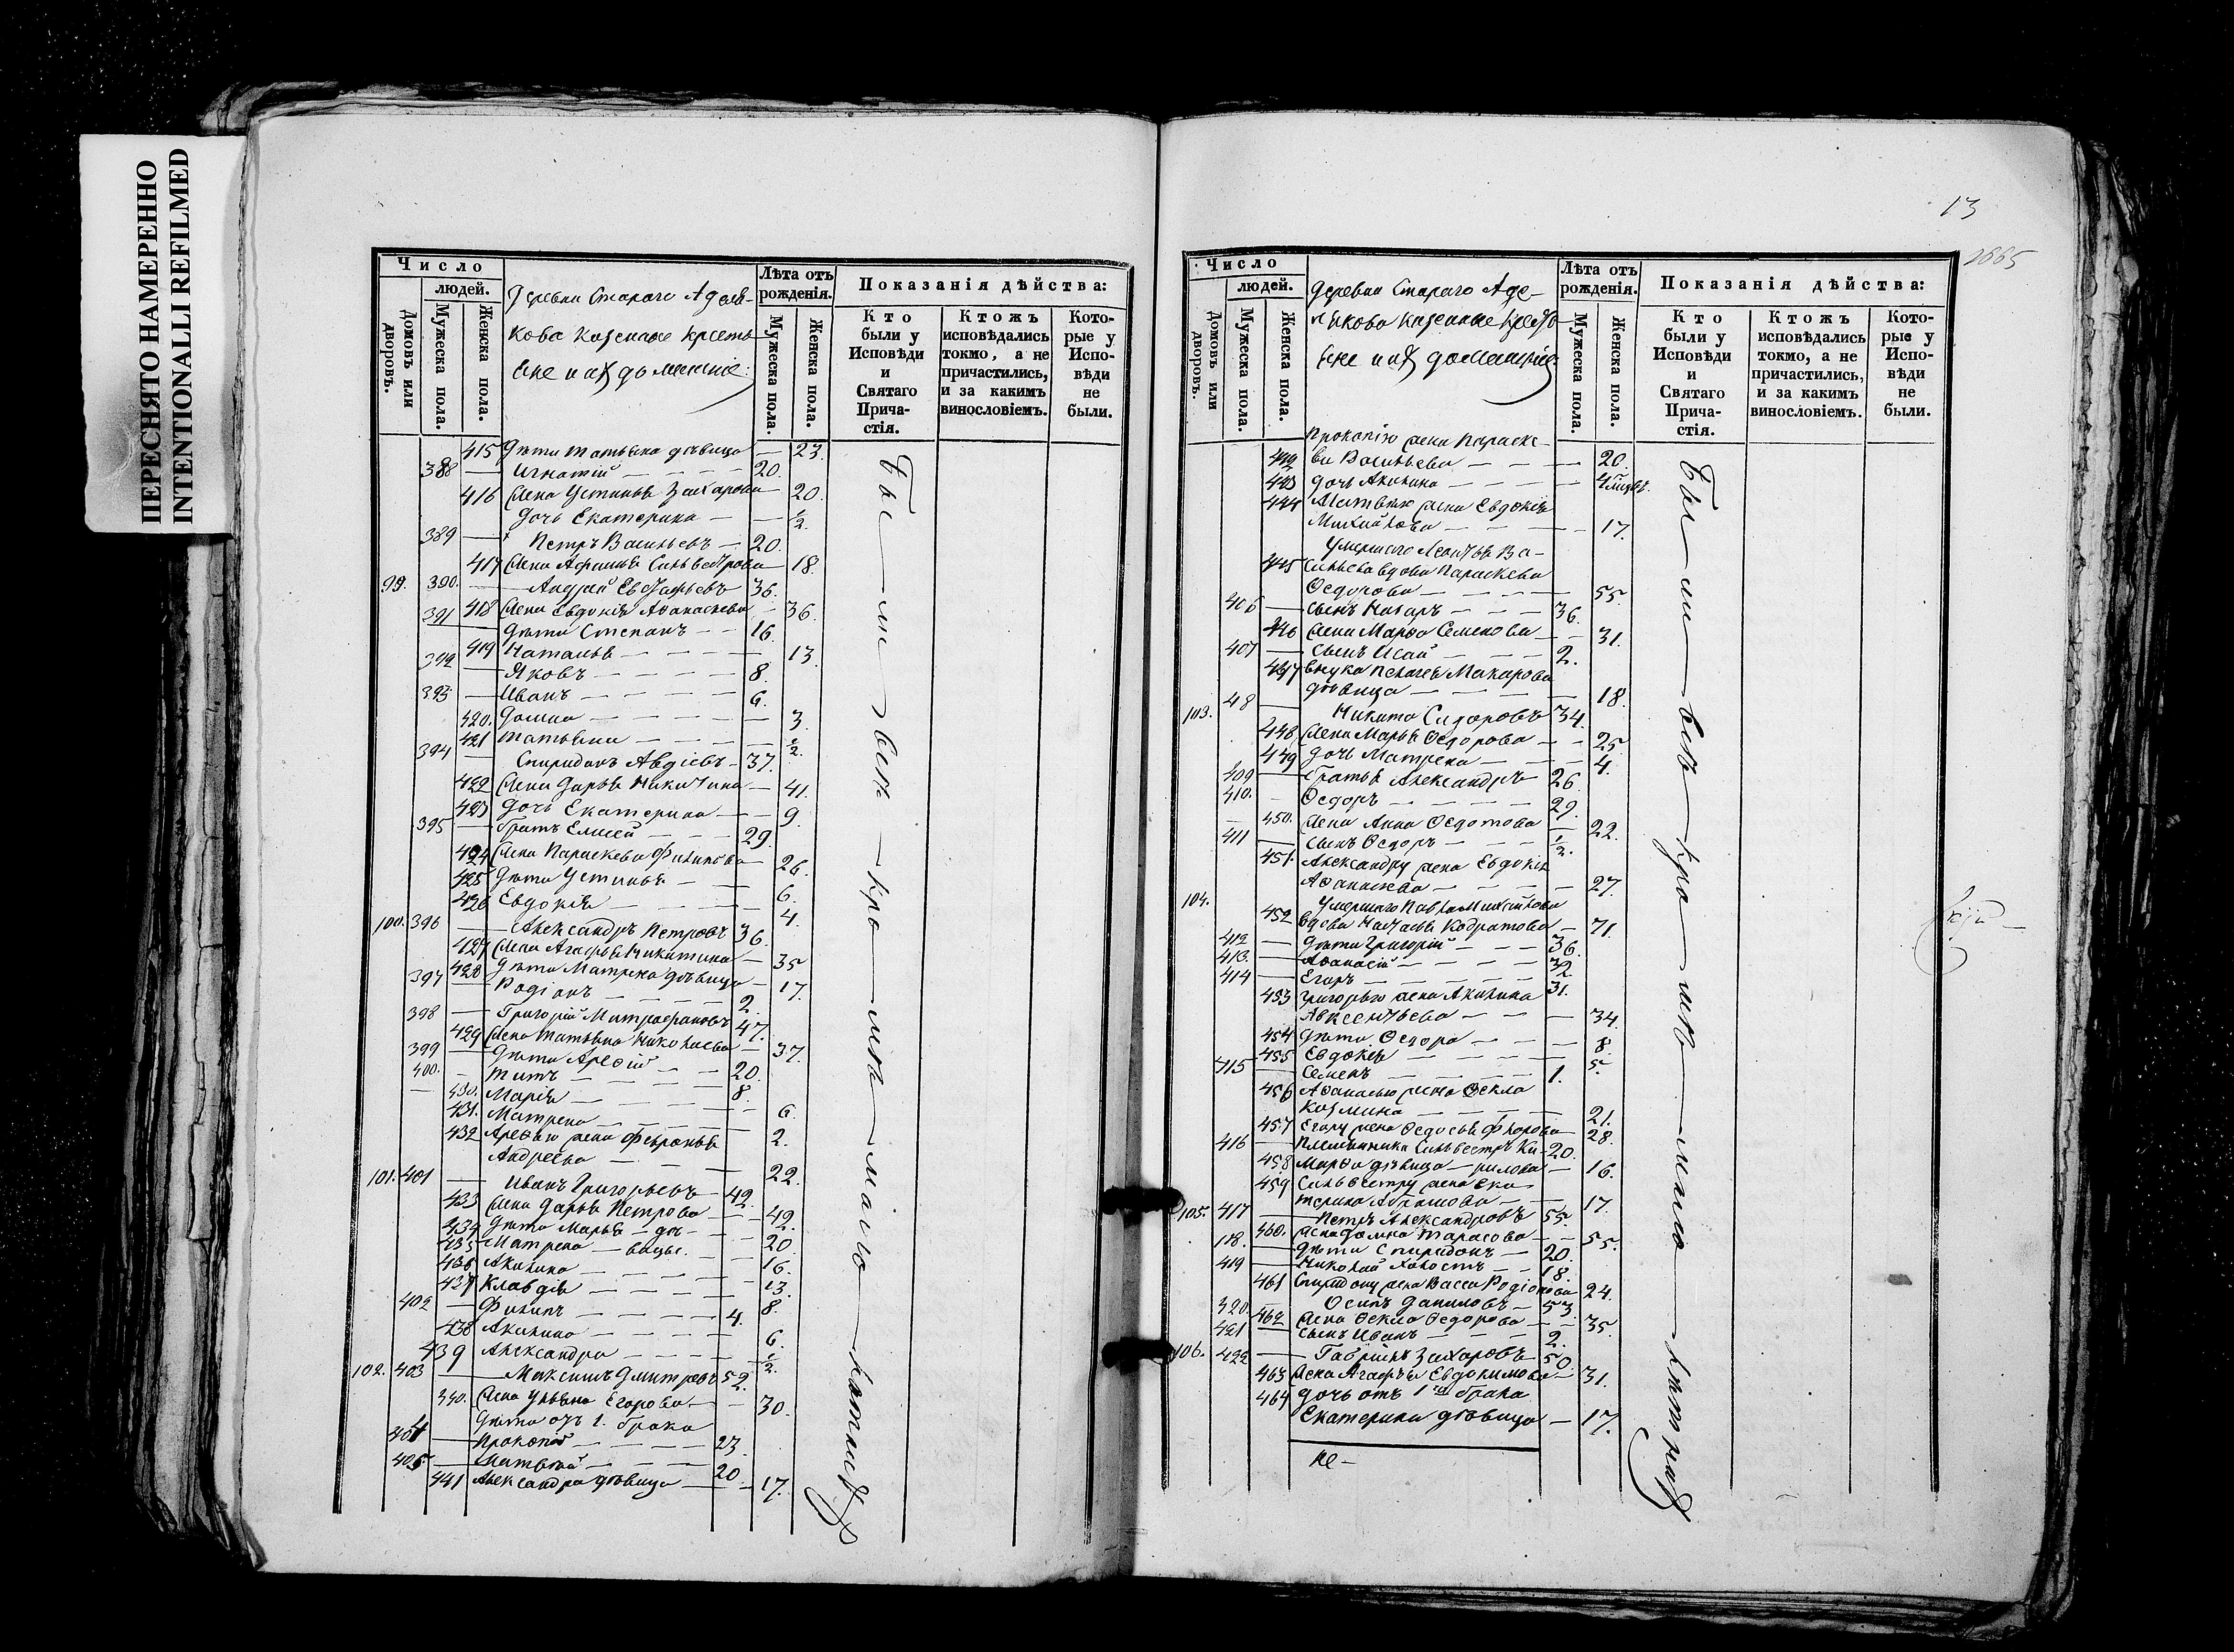 ПЕРЕСНЯТО НАМЕРЕННО
INTENTIONALLI REFILMED
Число
людей.
Домовъ или дворовъ.
Мужеска пола.
Женска пола.
Деревни Стараго
кова казенные крестья
не и их домашние:
Лѣта отъ рожденія.
Мужеска пола.
Женска пола.
Показанія дѣйства:
Кто были у Исповѣди и Святаго Причастія.
Ктожъ исповѣдались токмо, а не причастились, и за какимъ винословіемъ.
Которые у Исповѣди не были.
415 Дѣти Татьяна дѣвица — 23.
388 — Игнатій — 20.
416 Жена Устинья Захарова — 20.
Дочь Екатерина — 1/2.
389 — Петръ Васильевъ — 20.
417 Жена Афимья Сильвестрова — 18.
99. 390. — Андрей 36.
391 418 Жена Евдокія Аѳанасьева — 36.
Дѣти Степанъ — 16.
419 Наталья — 13.
392 — Яковъ — 8.
393 — Иванъ — 6.
420. Домна — 3.
421 Татьяна — 1/2.
394 — Спиридонъ Авдіевъ — 37.
422 Жена Дарья Никитина — 41.
423 Дочь Екатерина — 9.
395 — Братъ Елисей — 29.
424 Жена Параскева Филипова — 26.
425 Дѣти Устинья — 6.
426 Евдокія — 4.
100. 396 — Александръ Петровъ 36.
427 Жена Агафья Никитина — 35
428 Дѣти Матрена дѣвица — 17.
397 — Родіонъ — 2.
398 — Григорій Митрофановъ 47.
429 Жена Татьяна Николаева — 37.
399 — Дѣти Арефій — 20.
400. — Титъ — 8.
430. Марія — 6.
431. Матрена — 2.
432 Арефью жена Февронья
Андреева — 22.
101. 401 — Иванъ Григорьевъ — 42.
433 Жена Дарья Петрова — 42.
434 Дѣти Марья — дѣ- — 20
435 Матрена — вицы. — 16.
436 Акилина — 13.
437 Клавдія — 8.
402 — Филипъ — 4.
438 Акилина — 6.
439 Александра — 1/2.
102. 403 — Максимъ Дмитревъ 52.
330. Жена Ульяна Егорова — 30.
Дѣти отъ 1. брака
404 — Прокопій — 23.
405 — Матвѣй — 20.
441 Александра дѣвица — 17.
13
Число
людей.
Домовъ или дворовъ.
Мужеска пола.
Женска пола.
Деревни Стараго Аде-
някова казенные крестья
не и их домашние.
Лѣта отъ рожденія.
Мужеска пола.
Женска пола.
Показанія дѣйства:
Кто были у Исповѣди и Святаго Причастія.
Ктожъ исповѣдались токмо, а не причастились, и за какимъ винословіемъ.
Которые у Исповѣди не были.
Прокопію жена Параске-
442 ва Васильева — 20.
443 Дочь Акилина — 4
444 Матвѣю жена Евдокія
Михайлова — 17.
Умершаго Леонтья Ва-
445 сильева вдова Параскева
Ѳедорова — 55.
406 — Сынъ Назаръ — 36.
446 Жена Марѳа Семенова — 31.
407 — Сынъ Исай — 2.
447 внука Пелагея Макарова
дѣвица — 18.
103. 48 — Никита Сидоровъ 34.
448 Жена Марья Ѳедорова — 25
449 Дочь Матрена — 4.
409 — Братья Александръ — 26.
410. — Ѳедоръ — 29.
450. Жена Анна Ѳедотова — 22.
411 — Сынъ Ѳедоръ — 1/2.
451. Александру жена Евдокія
Аѳанасьева — 27.
104. Умершаго Павла Михайлова
452 вдова Наталья Кодратова — 71.
412 — Дѣти Григорій — 36.
413. — Аѳанасій — 32
414 — Егоръ — 31.
453 Григорью жена Акилина
Авксентьева — 34.
454 Дѣти Ѳедора — 8.
455 Евдокія — 5.
415 — Семенъ — 1.
456 Аѳанасью жена Ѳекла
Козмина — 21.
457 Егору жена Ѳедосья Флорова — 28.
416 — Племянники Сильвестръ Ки- 20.
458 Марѳа дѣвица — рилова — 16.
459 Сильвестру жена Ека-
терина Абрамова — 17.
105. 417 — Петръ Александровъ 55.
460. Жена Домна Тарасова — 55.
118. — Дѣти Спиридонъ — 20.
419 — Николай холостъ — 18.
461 Спиридону жена Васса Родіонова 24.
320. Осипъ Даниловъ — 53
462 Жена Ѳекла Ѳедорова — 35.
421 — Сынъ Иванъ — 2.
106. 422 — Гаврійлъ Захаровъ 50.
463 Жена Агафья Евдокимова — 31.
464 Дочь отъ 1го брака
Екатерина дѣвица — 17.